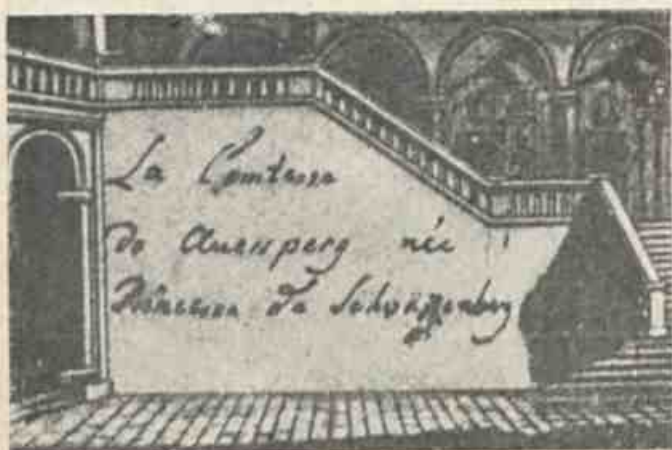 La Comtesse
de Auersperg née
Princesse de Schwarzenberg